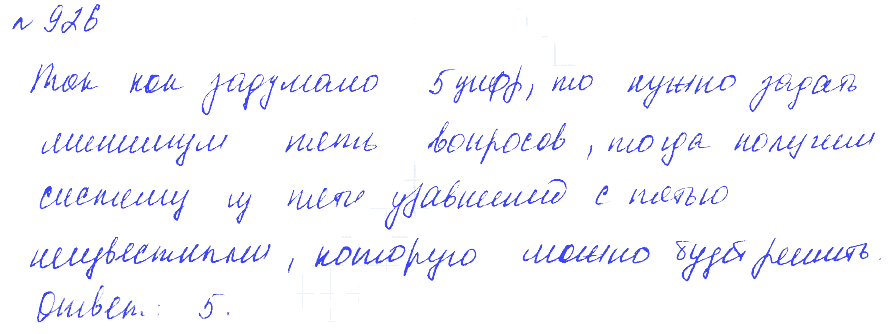 № 926
Так как задумано 5 цифр, то нужно задать
минимум пять вопросов, тогда получим
систему из пяти уравнений с пятью
неизвестными, которую можно будет решить.
Ответ: 5.